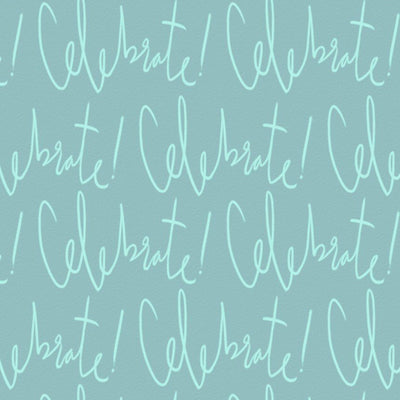 ! Celebrate! Celebrate!
Celebrate! Celebrate! Cele
! Celebrate! Celebrate!
Celebrate! Celebrate! Cele